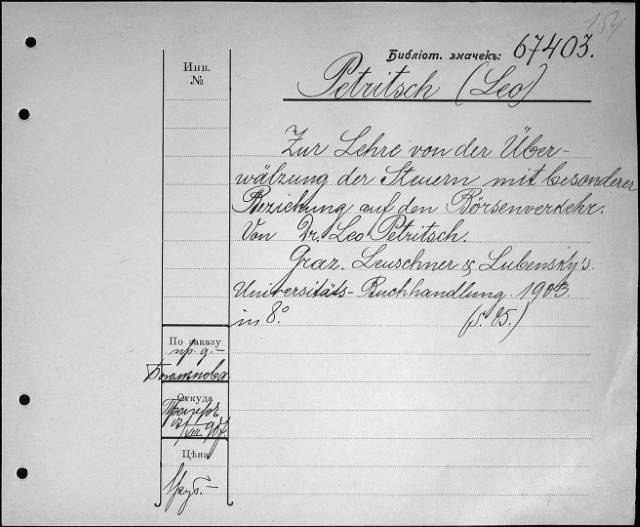 154
Библіот. значекъ: 67403.
Инв.
№
Petritsch (Leo)
Zur Lehre von der Über-
wälzung der Steuern mit besonderer
Beziehung auf den Börsenverkehr.
Von Dr. Leo Petritsch.
Graz. Leuschner & Lubensky's
Universitäts-Buchhandlung. 1903.
in 8.°
По заказу
пр. д-
Откуда
Цѣна
1 руб. -